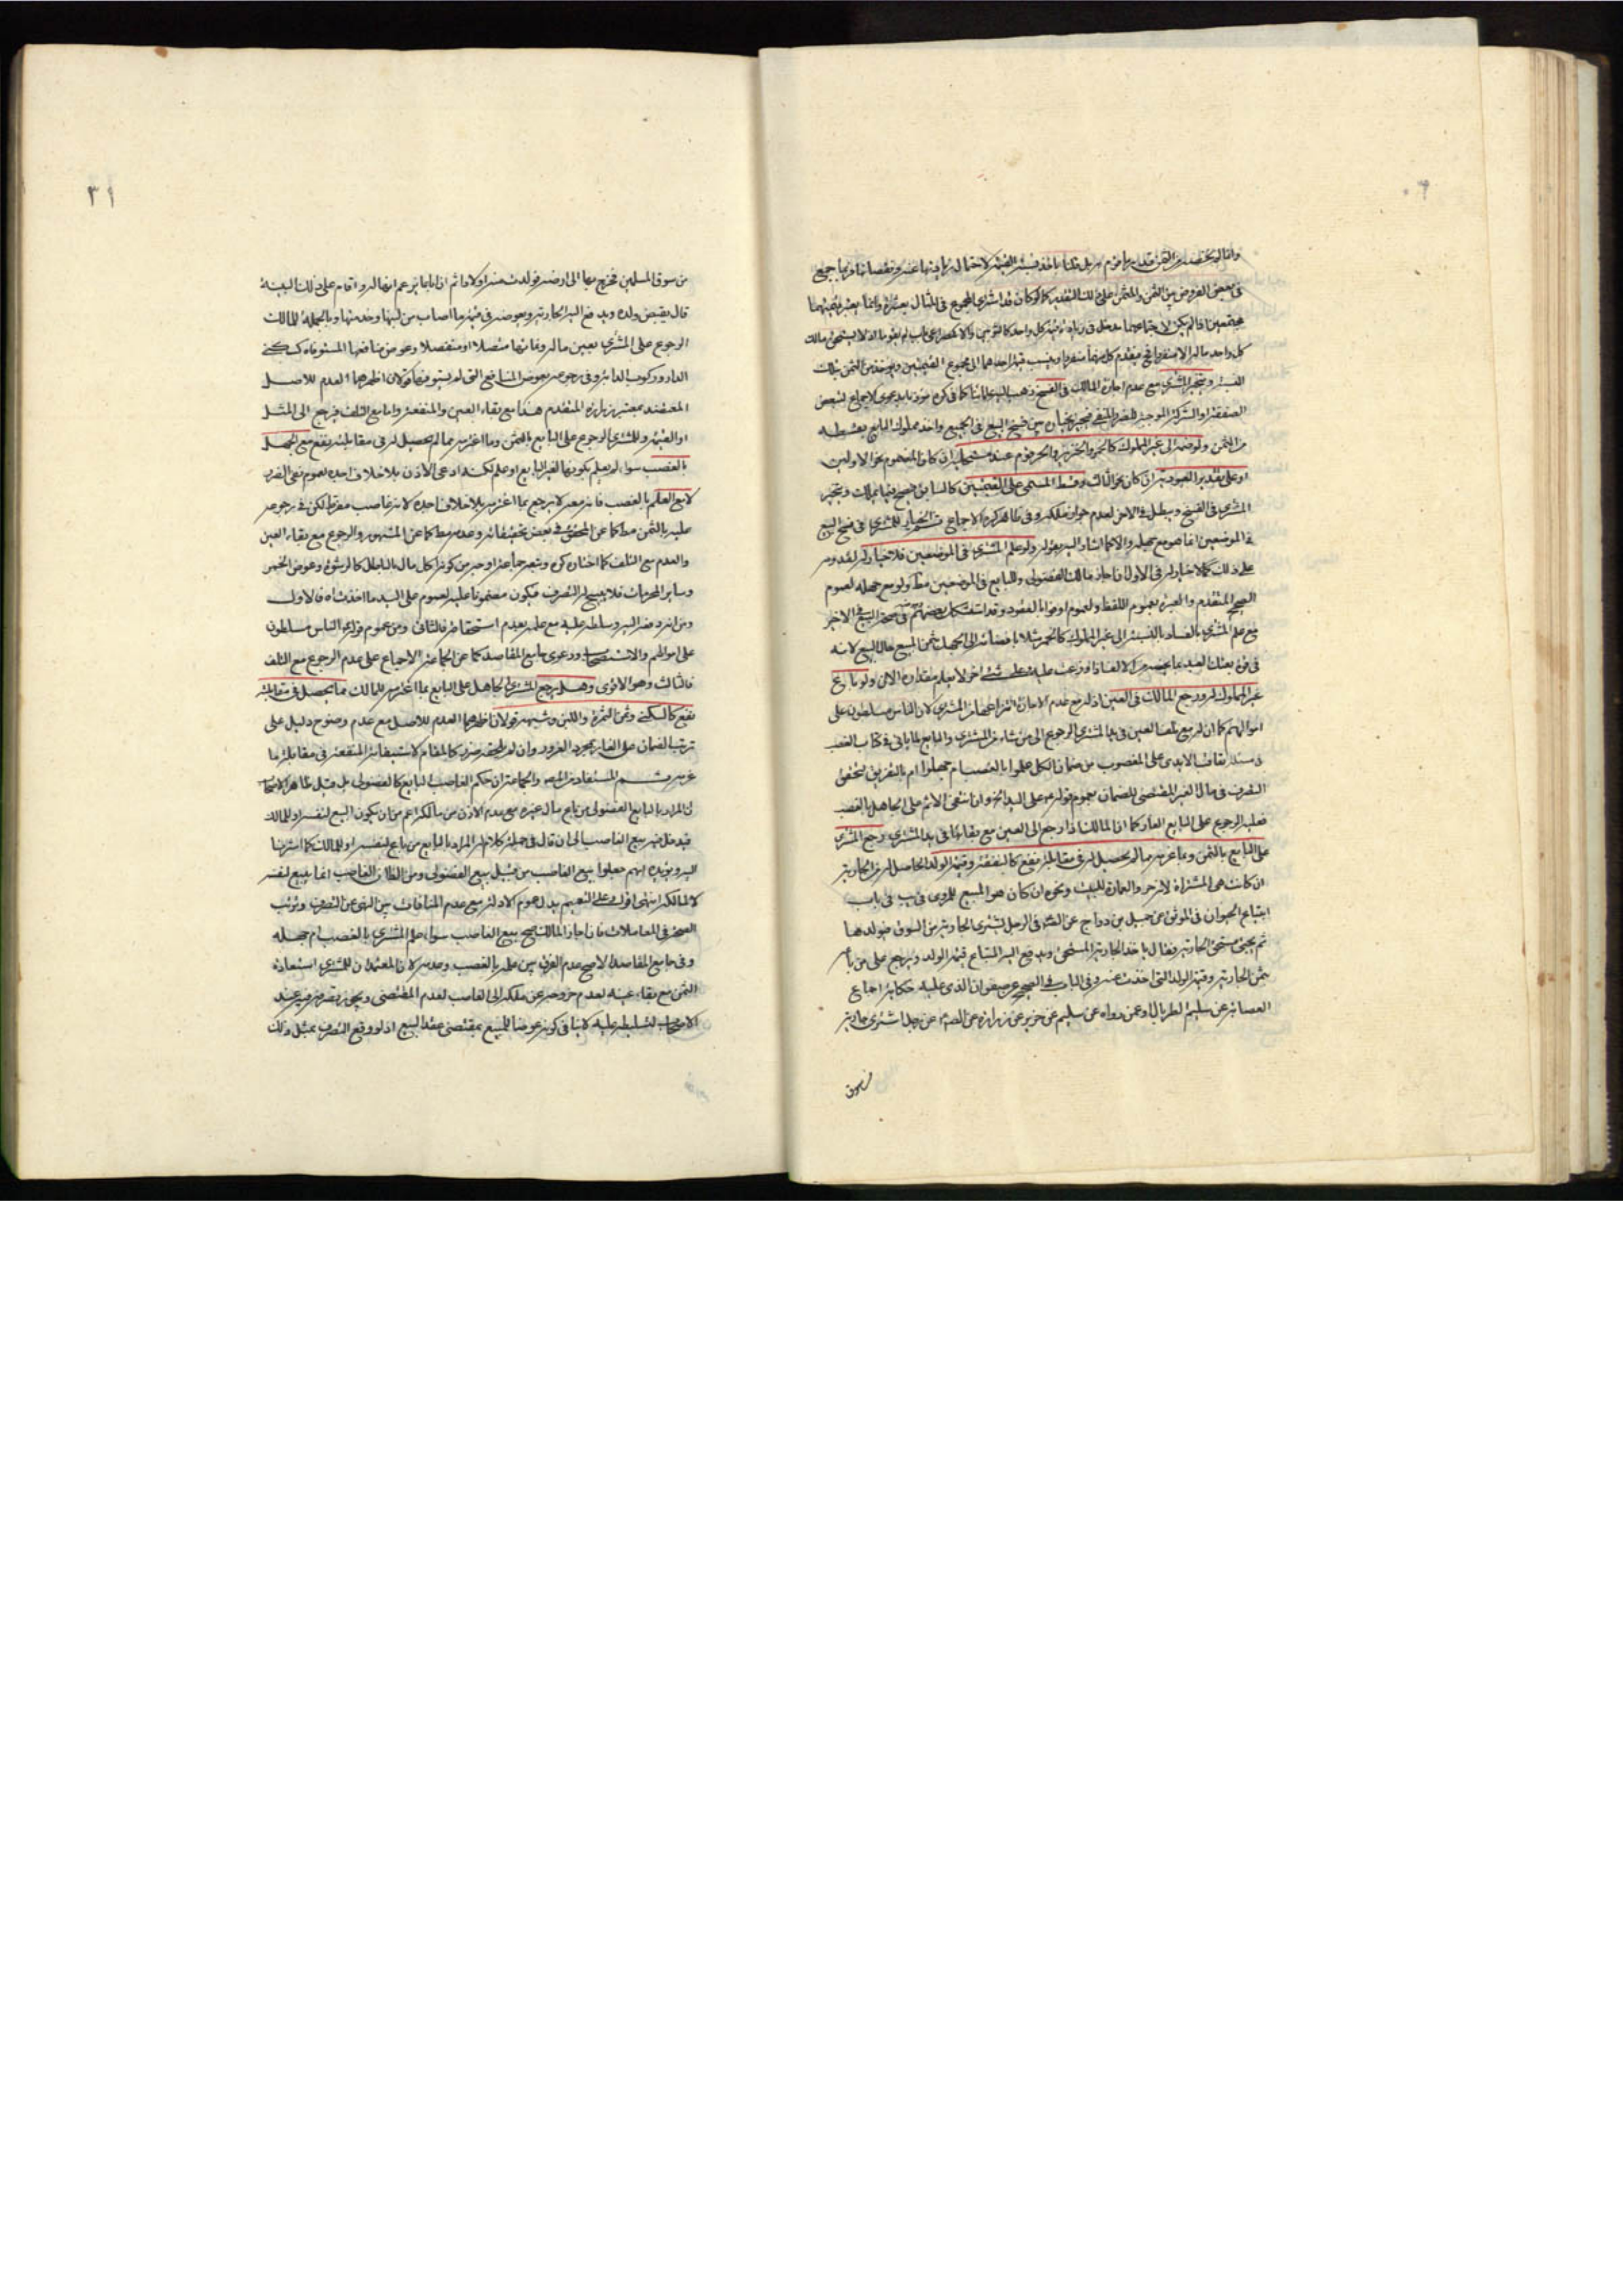 ٣٠
وانما لم يختص من الثمن بقدر ما قوم به بل قلنا ياخذ بنسبة القيمة لاحتمال زيادتها عنه ونقصانها فربما جمع
في بعض الفروض بين الثمن والمثمن على ذلك التقدير كما لو كان قد اشترى المجموع في المثال بعشرة وانما يعتبر قيمتهما
مجتمعين اذا لم يكن لاجتماعهما مدخل في زيادة قيمة كل واحد كالثوبين والا كمصراعي باب لم يقوما اذ لا يستحق مالك
كل واحد ماله الا منفردا فيقوم كل منهما منفردا وينسب قيمة احدهما الى مجموع القيمتين ويؤخذ من الثمن بتلك
النسبة ويتخير المشتري مع عدم اجازة المالك في الفسخ ذهب اليه علماؤنا كما في كره مؤذنا بدعوى الاجماع لتبعض
الصفقة او الشركة الموجبة للضرر المنفي فيتخير بين فسخ البيع في الجميع واخذ مملوك البايع بقسطه
من الثمن ولو ضمه الى غير المملوك كالحر والخنزير والحر قوم عند مستحليه ان كان المضموم نحو الاولين
او على تقدير العبودية ان كان نحو الثالث وقسط المسمى على القيمتين كالسابق فيصح فيما يملك ويتخير
المشتري في الفسخ ويبطل في الاخر لعدم جواز ملكه وفي ظاهر كره الاجماع ثم الخيار للمشتري في فسخ البيع
في الموضعين انما هو مع جهله والا كما اشار اليه بقوله ولو علم المشتري في الموضعين فلا خيار له لقدومه
على ذلك كما لا خيار له في الاول اذا اجاز مالك الفضولي وللبايع في الموضعين مط ولو مع جهله لعموم
الصحيح المتقدم والعبرة بعموم اللفظ ولعموم اوفوا بالعقود وقد استشكل بعضهم في صحة البيع في الاخير
مع علم المشتري بالفساد بالنسبة الى غير المملوك كالخمر مثلا بافضائه الى الجهل بثمن المبيع حال البيع لانه
في قوة بعتك العبد بما يخصه من الالف اذا وزعت عليه وعلى شيء اخر لا يعلم مقداره الان ولو باع
غير المملوك له ورجع المالك في العين اذ له مع عدم الاجازة انتزاعها من المشتري لان الناس مسلطون على
اموالهم كما ان له مع تلف العين في يد المشتري الرجوع الى من شاء من المشتري والبايع لما ياتي في كتاب الغصب
من تعاقب الايدي على المغصوب من ضمان الكل علموا بالغصب ام جهلوا ام بالتفريق لتحقق
التصرف في مال الغير المقتضي للضمان بعموم قوله ص على اليد الخ وان انتفى الاثم على الجاهل بالغصب
فعليه الرجوع على البايع الغار كما ان المالك اذا رجع الى العين مع بقائها في يد المشتري رجع المشتري
على البايع بالثمن وبما غرمه مما لم يحصل له في مقابلته نفع كالنفقة وقيمة الولد الحاصل له من الجارية
ان كانت هي المشتراة لا زجر والعمارة للبيت ونحوه ان كان هو المبيع للمروي في يب في باب
ابتياع الحيوان في الموثق عن جميل بن دراج عن الصادق في الرجل يشتري الجارية من السوق فيولدها
ثم يجئ مستحق الجارية فقال ياخذ الجارية المستحق ويدفع اليه المبتاع قيمة الولد ويرجع على من باعه
بثمن الجارية وقيمة الولد التي اخذت منه وفي الباب في الصحيح عن صفوان الذي عليه حكاية اجماع
العصابة عن سليم الطربال او عمن رواه عن سليم عن حريز عن زرارة عن الصادق عن رجل اشترى جارية
من سوق
٣١
من سوق المسلمين فخرج بها الى ارضه فولدت منه اولادا ثم ان اباها يزعم انها له واقام على ذلك البينة
قال يقبض ولده ويدفع اليه الجارية ويعوضه في قيمة ما اصاب من لبنها وخدمتها وبالجملة للمالك
الرجوع على المشتري بعين ماله ونمائها متصلا او منفصلا وعوض منافعها المستوفاة كسكنى
الدار وركوب الدابة وفي رجوعه بعوض المنافع التي لم يستوفها قولان اظهرهما العدم للاصل
المعتضد بمعتبرة زرارة المتقدم هذا مع بقاء العين والمنفعة واما مع التلف فيرجع الى المثل
او القيمة وللمشتري الرجوع على البايع بالثمن وما اغترمه مما لم يحصل له في مقابلته نفع مع الجهل
بالغصب سواء لم يعلم بكونها لغير البايع او علم لكنه ادعى الاذن بلا خلاف اجده لعموم نفي الضرر
لا مع العلم بالغصب فانه معه لا يرجع بما اغترمه بلا خلاف اجده لانه غاصب مفرط لكن في رجوعه
عليه بالثمن مط كما عن المحقق في بعض تحقيقاته وعدمه مط كما عن المشهور والرجوع مع بقاء العين
والعدم مع التلف كما اختاره كره وتبعه جماعة اوجه من كونه اكل مال بالباطل كالرشوة وعوض الخمر
وساير المحرمات فلا يبيح له التصرف فيكون مضمونا عليه لعموم على اليد ما اخذت اه فالاول
ومن انه دفعه اليه وسلطه عليه مع علمه بعدم استحقاقه فالثاني ومن عموم قوله الناس مسلطون
على اموالهم والاستصحاب ودعوى جامع المقاصد كما عن الجماعة الاجماع على عدم الرجوع مع التلف
فالثالث وهو الاقوى وهل يرجع المشتري الجاهل على البايع بما اغترمه للمالك مما يحصل في مقابلته
نفع كالسكنى وثمن الثمرة واللبن وشبهه قولان اظهرهما العدم للاصل مع عدم وضوح دليل على
ترتب الضمان على الغار بمجرد الغرور وان لم يلحقه ضرر كالمقام لاستيفائه المنفعة في مقابلة ما
غرمه ثم المستفاد من المص والجماعة ان حكم الغاصب البايع كالفضولي بل قيل ظاهر الاصحاب
ان المراد بالبايع الفضولي من باع مال غيره مع عدم الاذن من مالكه اعم من ان يكون البيع لنفسه او للمالك
فيدخل فيه بيع الغاصب الى ان قال في جملة كلام له المراد بالبايع من باع لنفسه او للمالك كما اشرنا
اليه ويؤيده انهم جعلوا بيع الغاصب من قبيل بيع الفضولي ومن الظان الغاصب انما يبيع لنفسه
لا لمالكه انتهى اقول وعلى التعميم يدل عموم الادلة مع عدم المنافات بين النهي عن التصرف وترتب
الصحة في المعاملات فاذا اجاز المالك صح بيع الغاصب سواء علم المشتري بالغصب ام جهله
وفي جامع المقاصد الاصح عدم الفرق بين علمه بالغصب وعدمه لان المعتمد ان للمشتري استعادة
الثمن مع بقاء عينه لعدم خروجه عن ملكه الى الغاصب لعدم المقتضي ويجوز تصرفه فيه عند
الاصحاب لتسليطه عليه لا ينافي كونه عوضا للمبيع بمقتضى عقد البيع اذ لو وقع التصرف بمثل ذلك